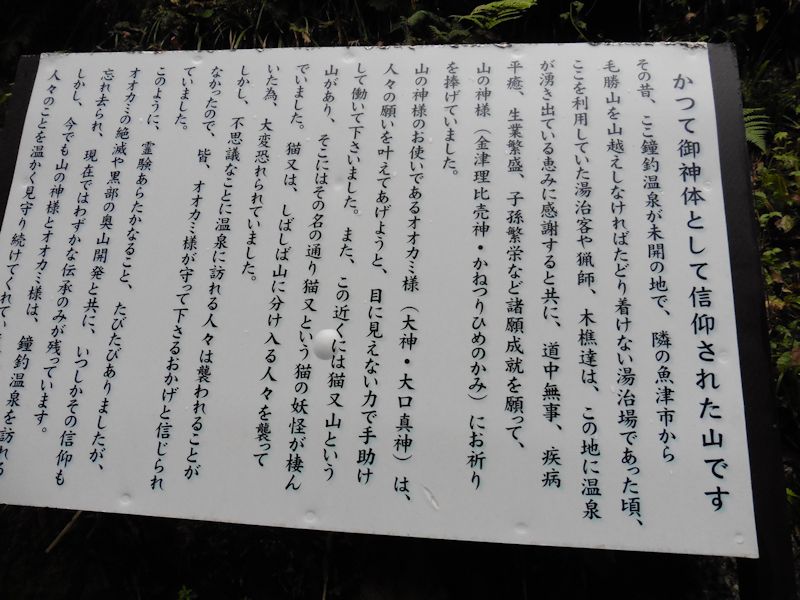 かつて御神体として信仰された山です
その昔、ここ鐘釣温泉が未開の地で、隣の魚津市から
毛勝山を山越えしなければたどり着けない湯治場であった頃、
ここを利用していた湯治客や猟師、木樵達は、この地に温泉
が湧き出ている恵みに感謝すると共に、道中無事、疾病
平癒、生業繁盛、子孫繁栄など諸願成就を願って、
山の神様（金津理比売神・かねつりひめのかみ）にお祈り
を捧げていました。
山の神様のお使いであるオオカミ様（大神・大口真神）は、
人々の願いを叶えてあげようと、目に見えない力で手助け
して働いて下さいました。また、この近くには猫又山という
山があり、そこにはその名の通り猫又という猫の妖怪が棲ん
でいました。猫又は、しばしば山に分け入る人々を襲って
いた為、大変恐れられていました。
しかし、不思議なことに温泉に訪れる人々は襲われることが
なかったので、皆、オオカミ様が守って下さるおかげと信じられ
ていました。
このように、霊験あらたかなること、たびたびありましたが、
オオカミの絶滅や黒部の奥山開発と共に、いつしかその信仰も
忘れ去られ、現在ではわずかな伝承のみが残っています。
しかし、今でも山の神様とオオカミ様は、鐘釣温泉を訪れる
人々のことを温かく見守り続けてくれてい